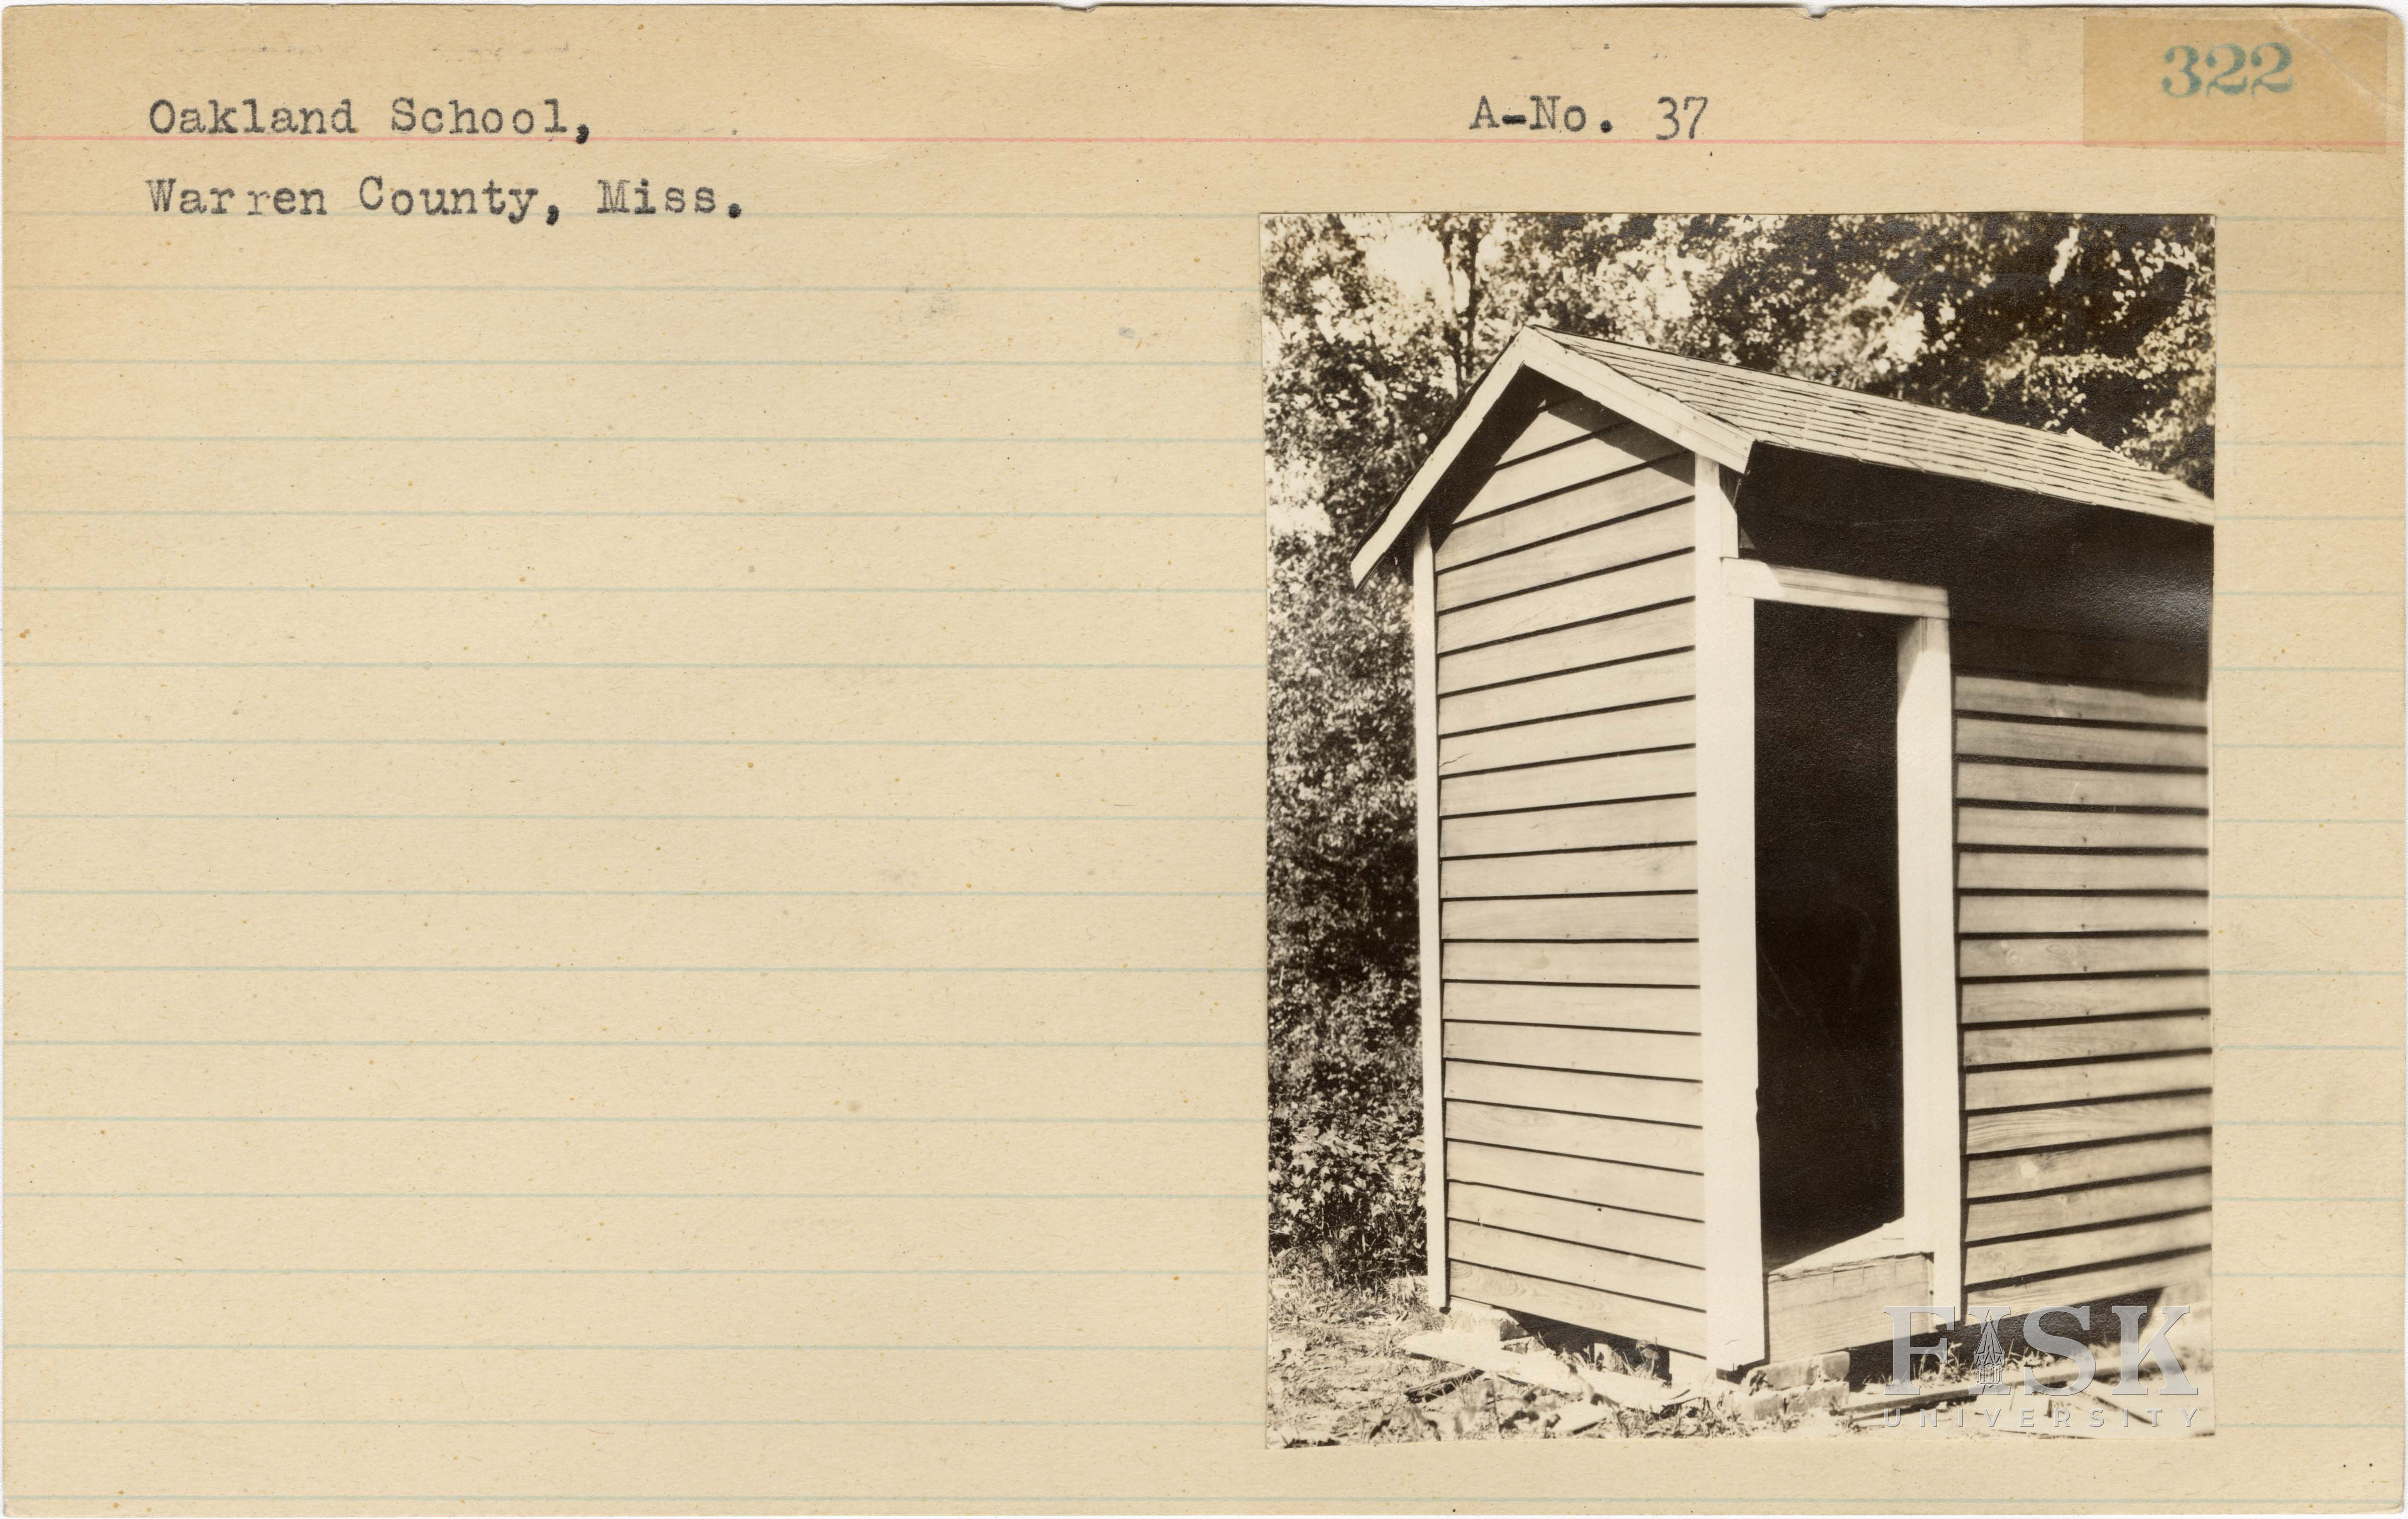 322
Oakland School, A-No. 37
Warren County, Miss.
FISK
UNIVERSITY